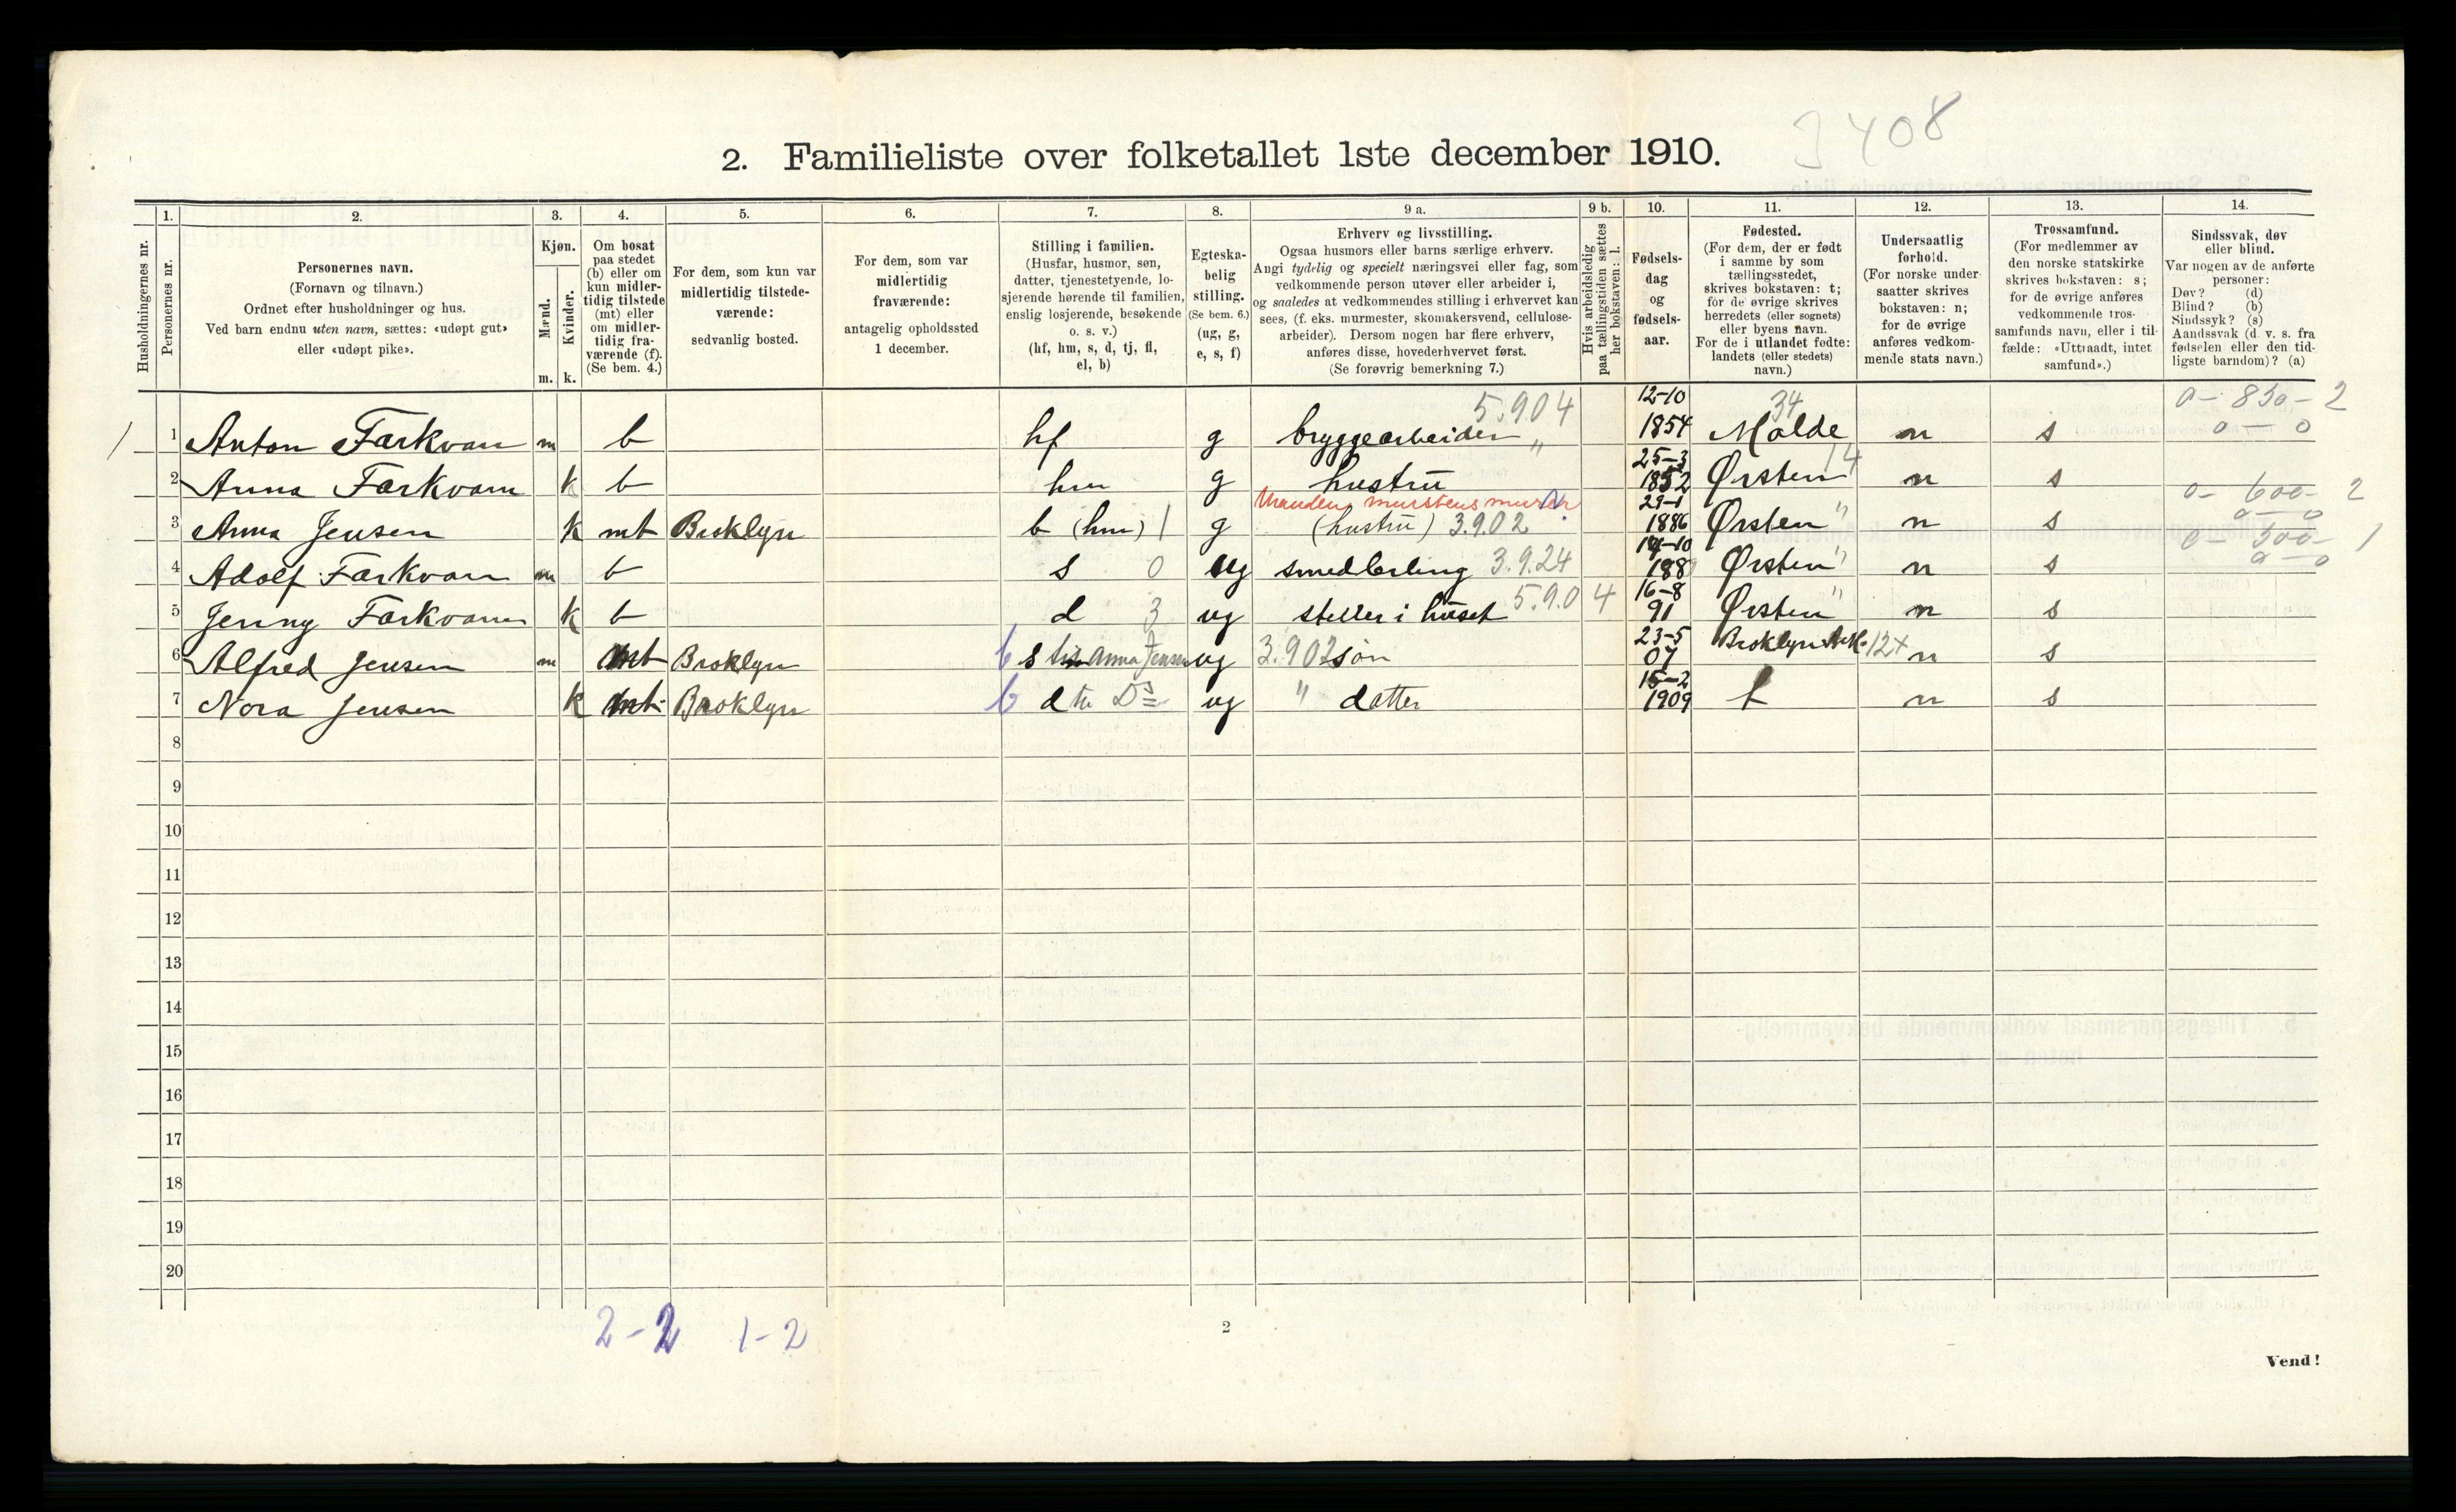 3408
2. Familieliste over folketallet 1ste december 1910.
Husholdningernes nr.
1. Personernes nr.
2. Personernes navn. (Fornavn og tilnavn.) Ordnet efter husholdninger og hus. Ved barn endnu uten navn, sættes: «udøpt gut» eller «udøpt pike».
3. Kjøn. Mænd. m. Kvinder. k.
4. Om bosat paa stedet (b) eller om kun midlertidig tilstede (mt) eller om midlertidig fraværende (f). (Se bem. 4.)
5. For dem, som kun var midlertidig tilstedeværende: sedvanlig bosted.
6. For dem, som var midlertidig fraværende: antagelig opholdssted 1 december.
7. Stilling i familien. (Husfar, husmor, søn, datter, tjenestetyende, losjerende hørende til familien, enslig losjerende, besøkende o. s. v.) (hf, hm, s, d, tj, fl, el, b)
8. Egteskabelig stilling. (Se bem. 6.) (ug, g, e, s, f)
9 a. Erhverv og livsstilling. Ogsaa husmors eller barns særlige erhverv. Angi tydelig og specielt næringsvei eller fag, som vedkommende person utøver eller arbeider i, og saaledes at vedkommendes stilling i erhvervet kan sees, (f. eks. murmester, skomakersvend, cellulosearbeider). Dersom nogen har flere erhverv, anføres disse, hovederhvervet først. (Se forøvrig bemerkning 7.)
9 b. Hvis arbeidsledig paa tællingstiden sættes her bokstaven: l.
10. Fødselsdag og fødselsaar.
11. Fødested. (For dem, der er født i samme by som tællingsstedet, skrives bokstaven: t; for de øvrige skrives herredets (eller sognets) eller byens navn. For de i utlandet fødte: landets (eller stedets) navn.)
12. Undersaatlig forhold. (For norske undersaatter skrives bokstaven: n; for de øvrige anføres vedkommende stats navn.)
13. Trossamfund. (For medlemmer av den norske statskirke skrives bokstaven: s; for de øvrige anføres vedkommende trossamfunds navn, eller i tilfælde: «Uttraadt, intet samfund».)
14. Sindssvak, døv eller blind. Var nogen av de anførte personer: Døv? (d) Blind? (b) Sindssyk? (s) Aandssvak (d. v. s. fra fødselen eller den tidligste barndom)? (a)
1 1 Anton Farkvam m b hf g bryggearbeider 5.904 " 12-10 1854 Molde 34 n s 0 - 850 - 2 0 - 0
2 Anna Farkvam k b hm g hustru 25-3 1852 Ørsten 14 n s
3 Anna Jensen k mt Broklyn b (hm) 1 g Manden murstensmurer (hustru) 3.902 29-1 1886 Ørsten " n s 0 - 600 - 2 0 - 0
4 Adolf Farkvam m b s 0 ug smedlærling 3.9.24 14-10 1889 Ørsten " n s 0 - 300 - 1 0 - 0
5 Jenny Farkvam k b d 3 ug steller i huset 5.90 4 16-8 91 Ørsten " n s
6 Alfred Jensen m mt Broklyn b s til Anna Jensen ug 3.902 søn 23-5 07 Broklyn 12+ n s
7 Nora Jensen k mt Broklyn b d til Do ug " datter 15-2 1909 t n s
8
9
10
11
12
13
14
15
16
17
18
19
20
2-2 1-2
2
Vend!